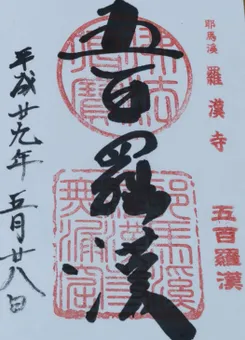 耶馬溪 羅漢寺
五百羅漢
五百羅漢
平成廿九年 五月廿八日